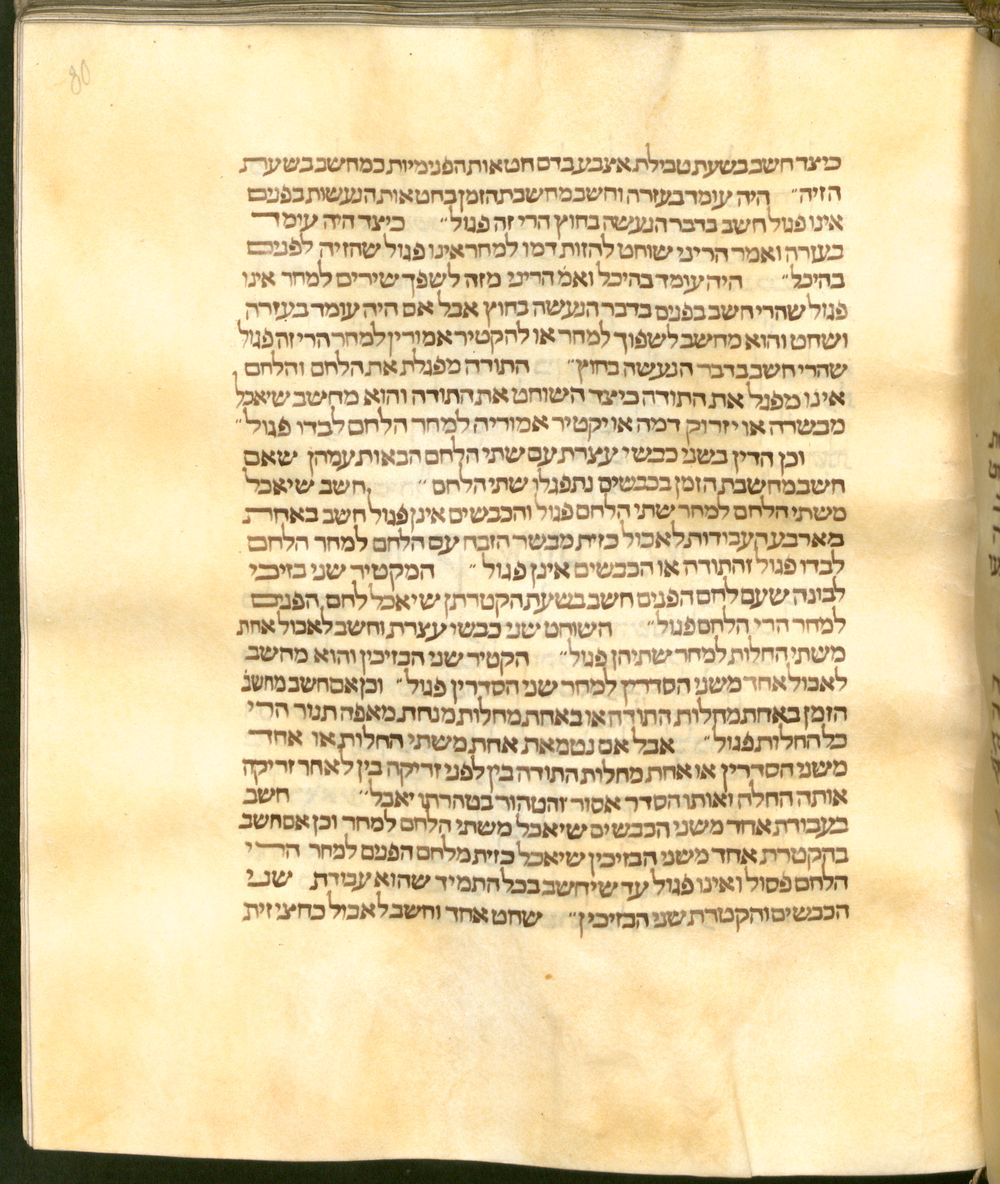 80
כיצד חשב בשעת טבילת אצבע בדם חטאות הפנימיות כמחשב בשעת
הזיה״ היה עומד בעזרה וחשב מחשבת הזמן בחטאות הנעשות בפנים
אינו פגול חשב בדבר הנעשה בחוץ הרי זה פגול״ כיצד היה עומד
בעזרה ואמר הריני שוחט להזות דמו למחר אינו פגול שהזיה לפנים
בהיכל״ היה עומד בהיכל ואמ׳ הריני מזה לשפך שירים למחר אינו
פגול שהרי חשב בפנים בדבר הנעשה בחוץ אבל אם היה עומד בעזרה
ושחט והוא מחשב לשפוך למחר או להקטיר אמורין למחר הרי זה פגול
שהרי חשב בדבר הנעשה בחוץ״ התודה מפגלת את הלחם והלחם
אינו מפגל את התודה כיצד השוחט את התודה והוא מחשב שיאכל
מבשרה או יזרוק דמה או יקטיר אמוריה למחר הלחם לבדו פגול״
וכן הדין בשני כבשי עצרת עם שתי הלחם הבאות עמהן שאם
חשב מחשבת הזמן בכבשים נתפגלו שתי הלחם״ חשב שיאכל
משתי הלחם למחר שתי הלחם פגול והכבשים אינן פגול חשב באחת
מארבע העבודות לאכול כזית מבשר הזבח עם הלחם למחר הלחם
לבדו פגול והתודה או הכבשים אינן פגול״ המקטיר שני בזיכי
לבונה שעם לחם הפנים חשב בשעת הקטרתן שיאכל לחם הפנים
למחר הרי הלחם פגול״ השוחט שני כבשי עצרת וחשב לאכול אחת
משתי החלות למחר שתיהן פגול״ הקטיר שני הבזיכין והוא מחשב
לאכול אחד משני הסדרין למחר שני הסדרין פגול״ וכן אם חשב מחשב׳
הזמן באחת מחלות התודה או באחת מחלות מנחת מאפה תנור הרי
כל החלות פגול״ אבל אם נטמאת אחת משתי החלות או אחד
משני הסדרין או אחת מחלות התודה בין לפני זריקה בין לאחר זריקה
אותה החלה ואותו הסדר אסור והטהור בטהרתו יאכל״ חשב
בעבודת אחד משני הכבשים שיאכל משתי הלחם למחר וכן אם חשב
בהקטרת אחד משני הבזיכין שיאכל כזית מלחם הפנים למחר הרי
הלחם פסול ואינו פגול עד שיחשב בכל התמיד שהוא עבודת שני
הכבשים והקטרת שני הבזיכין״ שחט אחד וחשב לאכול כחצי זית